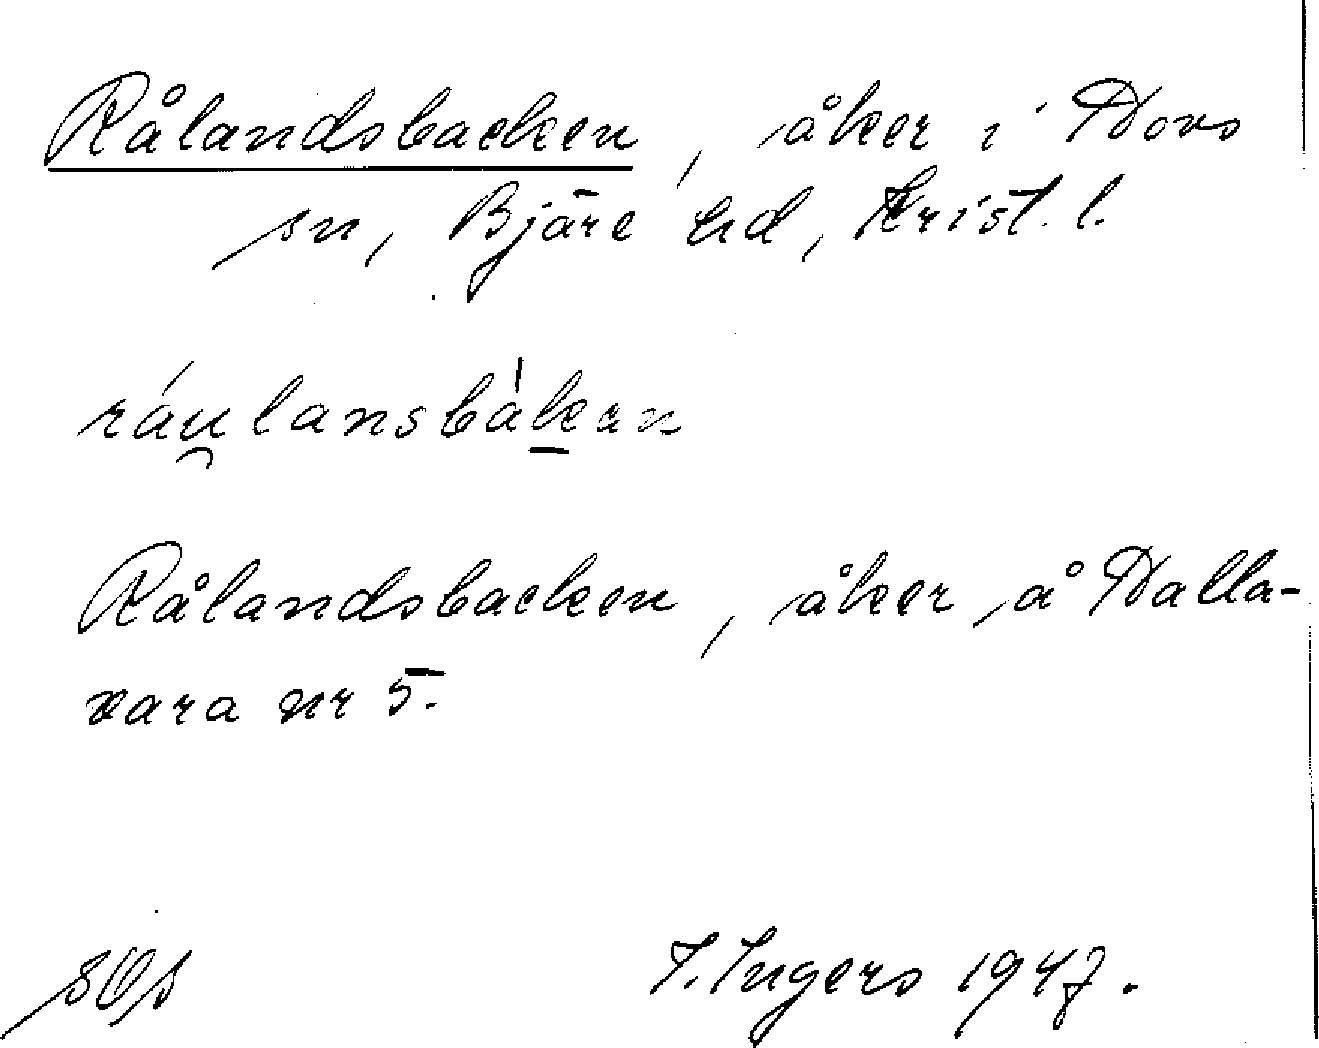 Rålandsbacken, åker i Hovs
sn, Bjäre hd, Krist. l.
ráu̯lansbàḵen
Rålandsbacken, åker å Halla-
vara nr 5.
I. Ingers 1947.